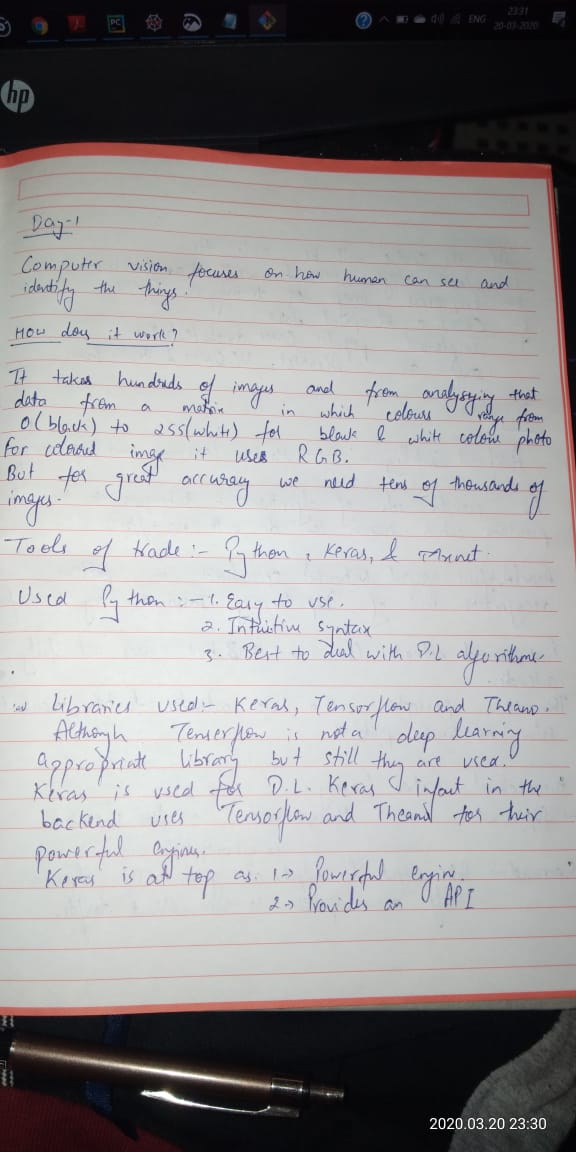 PC
ENG
23:31
20-03-2020
hp
Day-1
Computer vision focuses on how human can see and
identify the things.
How does it work?
It takes hundreds of images and from analysying that
data from a matrix in which colours range from
0(black) to 255(white) for black & white colour photo
for coloured image it uses RGB.
But for great accuracy we need tens of thousands of
images.
Tools of trade :- Python, Keras, &
Used Python :- 1. Easy to use.
2. Intuitive syntax
3. Best to deal with D.L algorithms.
Libraries used:- Keras, Tensorflow and Theano.
Although Tenserflow is not a deep learning
appropriate library but still they are used.
Keras is used for D.L. Keras infact in the
backend uses Tensorflow and Theano for their
powerful engines.
Keras is at top as. 1-> Powerful engin.
2-> Provides an API
2020.03.20 23:30